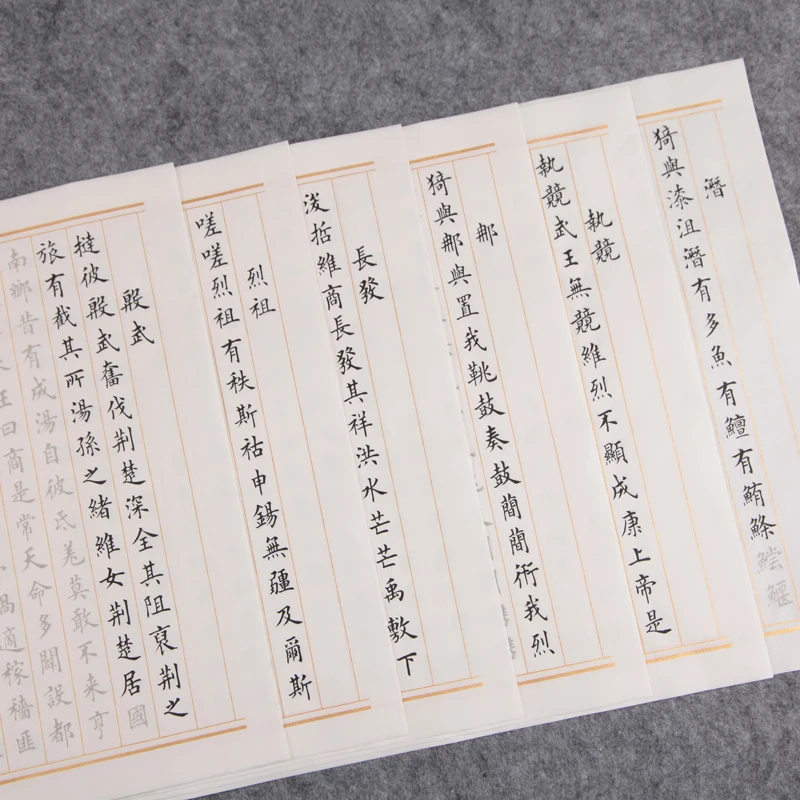 潛
猗與漆沮潛有多魚有鱣有鮪鰷鱨鰋
執競
執競武王無競維烈不顯成康上帝是
那
猗與那與置我鞉鼓奏鼓簡簡術我烈
長發
浚哲維商長發其祥洪水芒芒禹敷下
烈祖
嗟嗟烈祖有秩斯祜申錫無疆及爾斯
殷武
撻彼殷武奮伐荆楚深全其阻裒荆之
旅有截其所湯孫之緒維女荆楚居國
南鄉昔有成湯自彼氐羌莫敢不来亨
王曰商是常天命多開設都
適稼穡匪